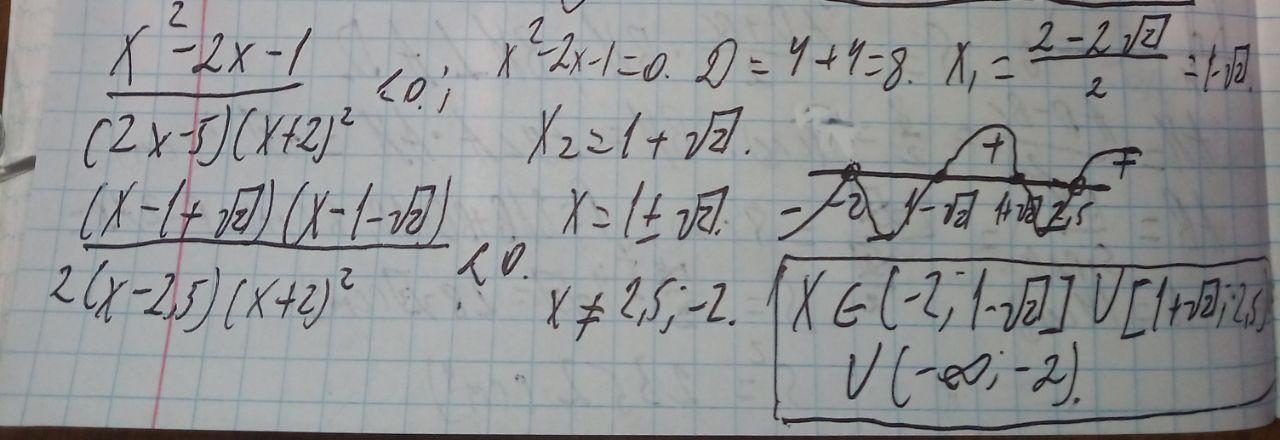 x²-2x-1 / (2x-5)(x+2)² <0.; x²-2x-1=0. D=4+4=8. x₁ = (2-2√2)/2 = 1-√2.
x₂=1+√2.
(x-1+√2)(x-1-√2) / 2(x-2,5)(x+2)² <0. x=1±√2.
x≠2,5; -2.
- -2 1-√2 + 1+√2 2,5 +
x∈(-2; 1-√2] ∪ [1+√2; 2,5)
∪ (-∞; -2).